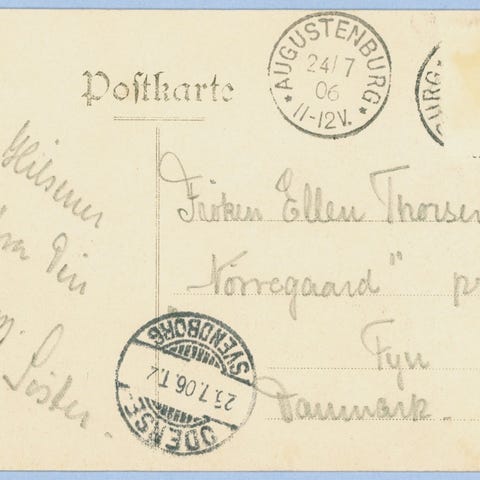 Postkarte
AUGUSTENBURG
24/7
06
11-12V.
BURG
Hilsener
fra Din
Søster.
Frøken Ellen Thorsen
"Nørregaard" pr
Fyn
Danmark.
ODENSE-
25.7.06.T.2
SVENDBORG